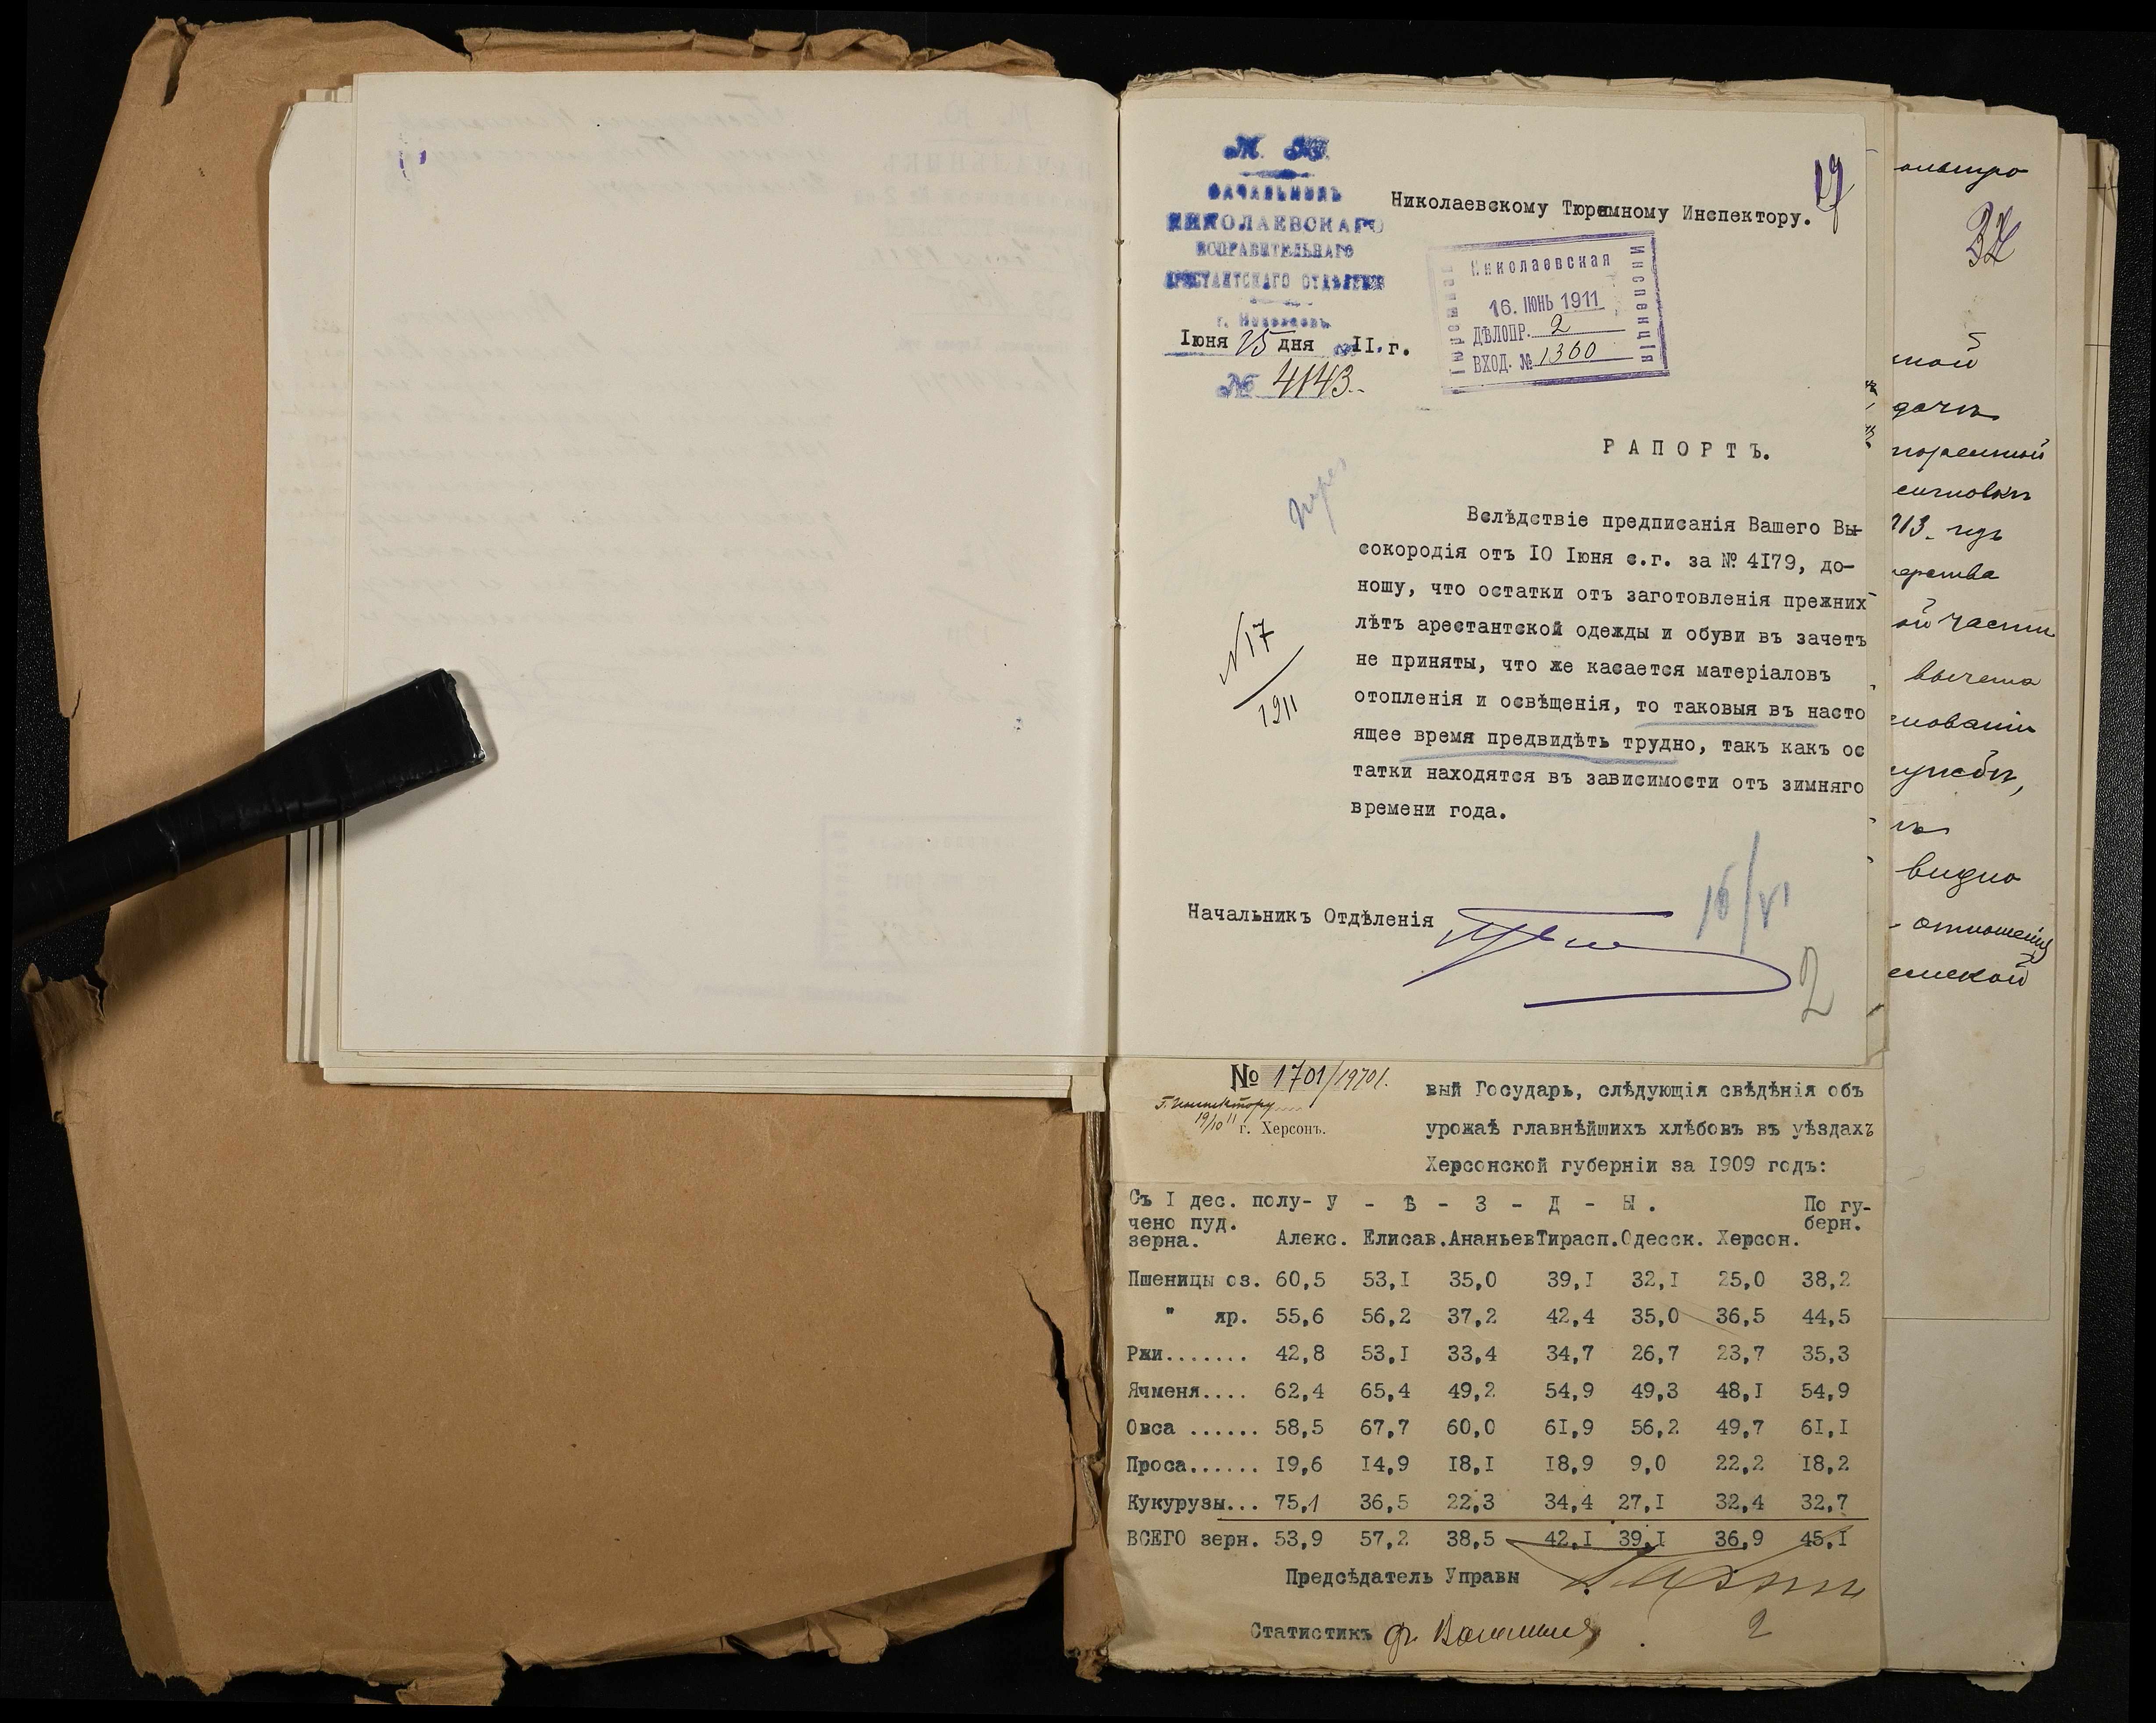 М. Ю.
НАЧАЛЬНИКЪ
НИКОЛАЕВСКАГО
ИСПРАВИТЕЛЬНАГО
АРЕСТАНТСКАГО ОТДѢЛЕНІЯ
г. Николаевъ.
Іюня 15 дня II. г.
№ 4143.
Николаевскому Тюремному Инспектору.
17
Николаевская
Тюремная
Инспекція
16. ІЮНЬ 1911
ДѢЛОПР. 2
ВХОД. № 1360
РАПОРТЪ.
Вслѣдствіе предписанія Вашего Вы-
сокородія отъ IO Іюня с.г. за № 4I79, до-
ношу, что остатки отъ заготовленія прежних
лѣтъ арестантской одежды и обуви въ зачетъ
не приняты, что же касается матеріаловъ
отопленія и освѣщенія, то таковыя въ насто
ящее время предвидѣть трудно, такъ какъ ос
татки находятся въ зависимости отъ зимняго
времени года.
N 17
1911
Начальникъ Отдѣленія
16/VI
2
№ 1701/19701.
Г. Инспектору
19/10 11
г. Херсонъ.
вый Государь, слѣдующія свѣдѣнія объ
урожаѣ главнѣйшихъ хлѣбовъ въ уѣздахъ
Херсонской губерніи за I909 годъ:
Съ I дес. полу- У - Ѣ - З - Д - Ы. По гу-
чено пуд. берн.
зерна. Алекс. Елисав. Ананьев Тирасп. Одесск. Херсон.
Пшеницы оз. 60,5 53,I 35,0 39,I 32,I 25,0 38,2
" яр. 55,6 56,2 37,2 42,4 35,0 36,5 44,5
Ржи....... 42,8 53,I 33,4 34,7 26,7 23,7 35,3
Ячменя.... 62,4 65,4 49,2 54,9 49,3 48,I 54,9
Овса ...... 58,5 67,7 60,0 6I,9 56,2 49,7 6I,I
Проса...... I9,6 I4,9 I8,I I8,9 9,0 22,2 I8,2
Кукурузы... 75,1 36,5 22,3 34,4 27,I 32,4 32,7
ВСЕГО зерн. 53,9 57,2 38,5 42,I 39,I 36,9 45,I
Предсѣдатель Управы
Статистикъ
2
32
ной
дачѣ
913. годъ
ой части
вычета
видно
отношенія